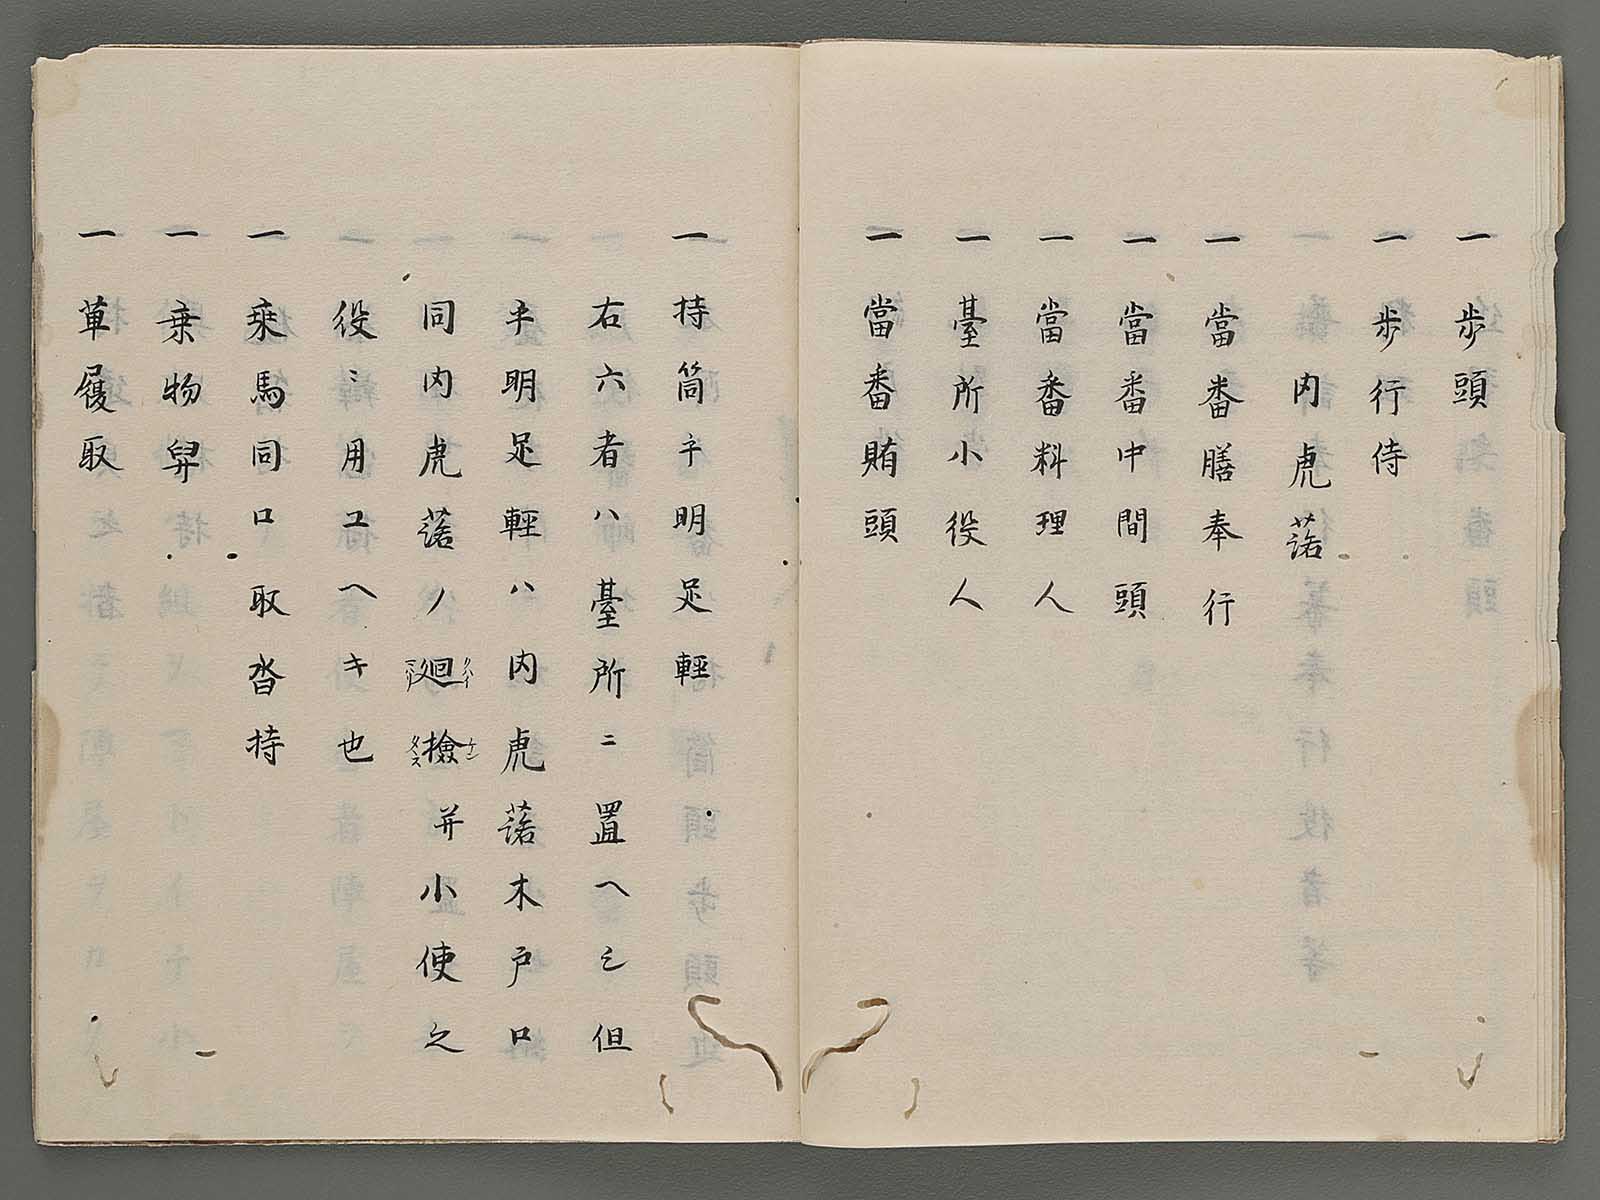 一 歩頭
一 歩行侍
内虎落
一 當番膳奉行
一 當番中間頭
一 當番料理人
一 臺所小役人
一 當番賄頭
一 持筒手明足輕
右六者ハ臺所ニ置ヘシ但
手明足輕ハ内虎落木戸口
同内虎落ノ廻撿并小使之
役ニ用ユヘキ也
一 乘馬同口取沓持
一 乗物舁
一 草履取